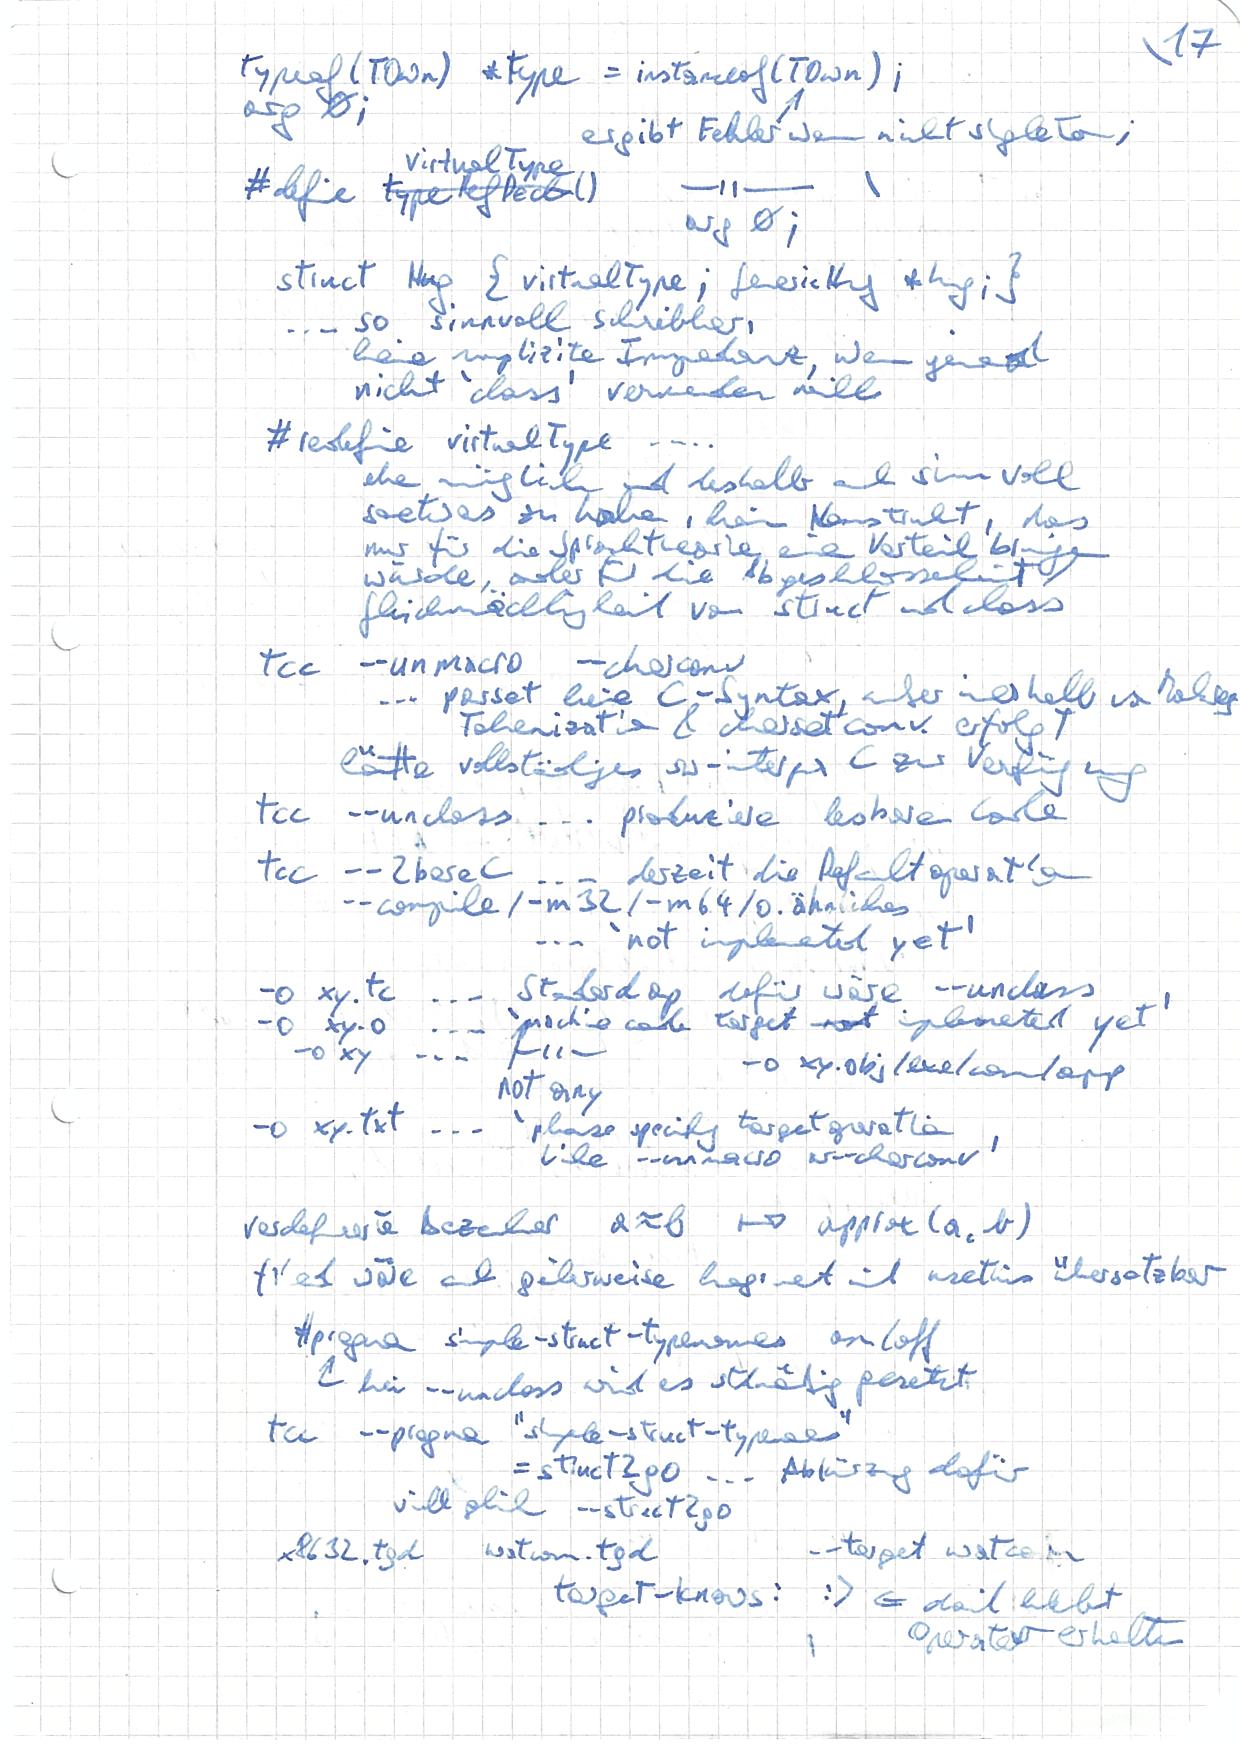 17
typeof(TOwn) *type = instanceof(TOwn);
arg 0;
ergibt Fehler wenn nicht singleton;
virtualType
#define typeRefDecl() —"— \
arg 0;
struct Hug { virtualType; genericHug *hug; }
.... so sinnvoll schreibbar,
keine implizite Impedanz, wenn jemand
nicht 'class' verwenden will
#redefine virtualType ....
ehe möglich und deshalb auch sinnvoll
soetwas zu haben, kein Konstrukt, das
nur für die Sprachtheorie einen Vorteil bringen
würde, oder für die Abgeschlossenheit /
Gleichmächtigkeit von struct und class
tcc --unmacro --charconv
... parset keine C-Syntax, außer innerhalb von
Tokenization & charsetconv. erfolgt
hätte vollständiges C zur Verfügung
tcc --unclass ... produziere lesbaren Code
tcc --2bareC ... derzeit die Defaultoperation
--compile/-m32/-m64/o. ähnliches
... 'not implemented yet'
-o xy.tc ... Standardop dafür wäre --unclass
-o xy.o ... 'machine code target not implemented yet'
-o xy ... —"— -o xy.obj/exe/com/app
not any
-o xy.txt ... 'please specify target operation
like --unmacro or --charconv'
a≈b ↦ approx(a,b)
wäre auch übersetzbar
#pragma simple-struct-typenames on/off
bei --unclass wird es ständig gesetzt
tcc --pragma "simple-struct-typenames"
=struct2go ... Abkürzung dafür
--struct2go
x8632.tgd watcom.tgd --target watcom
target-knows: :> ⇐ damit bleibt
Operator erhalten